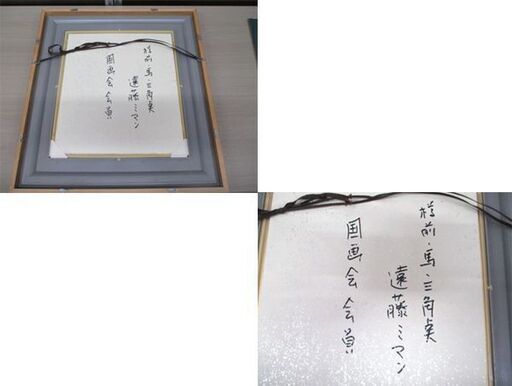 樽前・馬・三角点
遠藤ミマン
国画会会員
樽前・馬・三角点
遠藤ミマン
国画会会員